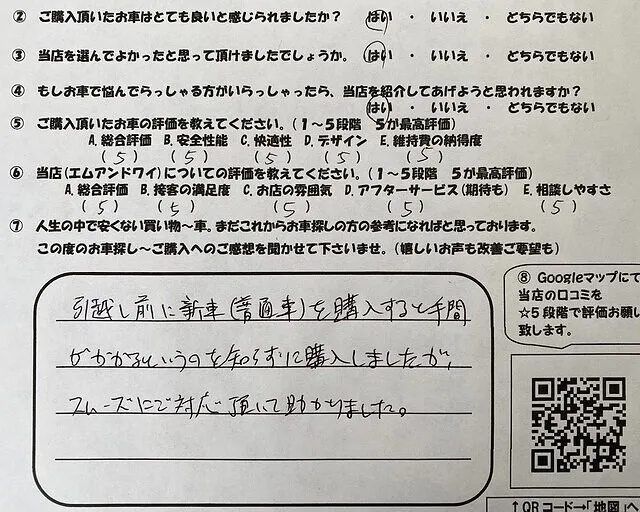 ② ご購入頂いたお車はとても良いと感じられましたか？ はい ・ いいえ ・ どちらでもない
③ 当店を選んでよかったと思って頂けましたでしょうか。 はい ・ いいえ ・ どちらでもない
④ もしお車で悩んでらっしゃる方がいらっしゃったら、当店を紹介してあげようと思われますか？
はい ・ いいえ ・ どちらでもない
⑤ ご購入頂いたお車の評価を教えてください。(１〜５段階 ５が最高評価)
A. 総合評価 B. 安全性能 C. 快適性 D. デザイン E. 維持費の納得度
(5) (5) (5) (5) (5)
⑥ 当店(エムアンドワイ)についての評価を教えてください。(１〜５段階 ５が最高評価)
A. 総合評価 B. 接客の満足度 C. お店の雰囲気 D. アフターサービス(期待も) E. 相談しやすさ
(5) (5) (5) (5) (5)
⑦ 人生の中で安くない買い物〜車。まだこれからお車探しの方の参考になればと思っております。
この度のお車探し〜ご購入へのご感想を聞かせて下さいませ。(嬉しいお声も改善ご要望も)
引越し前に新車(普通車)を購入すると手間
がかかるというのを知らずに購入しましたが、
スムーズにご対応頂いて助かりました。
⑧ Googleマップにて
当店の口コミを
☆５段階で評価お願い
致します。
↑QRコード→「地図」へ